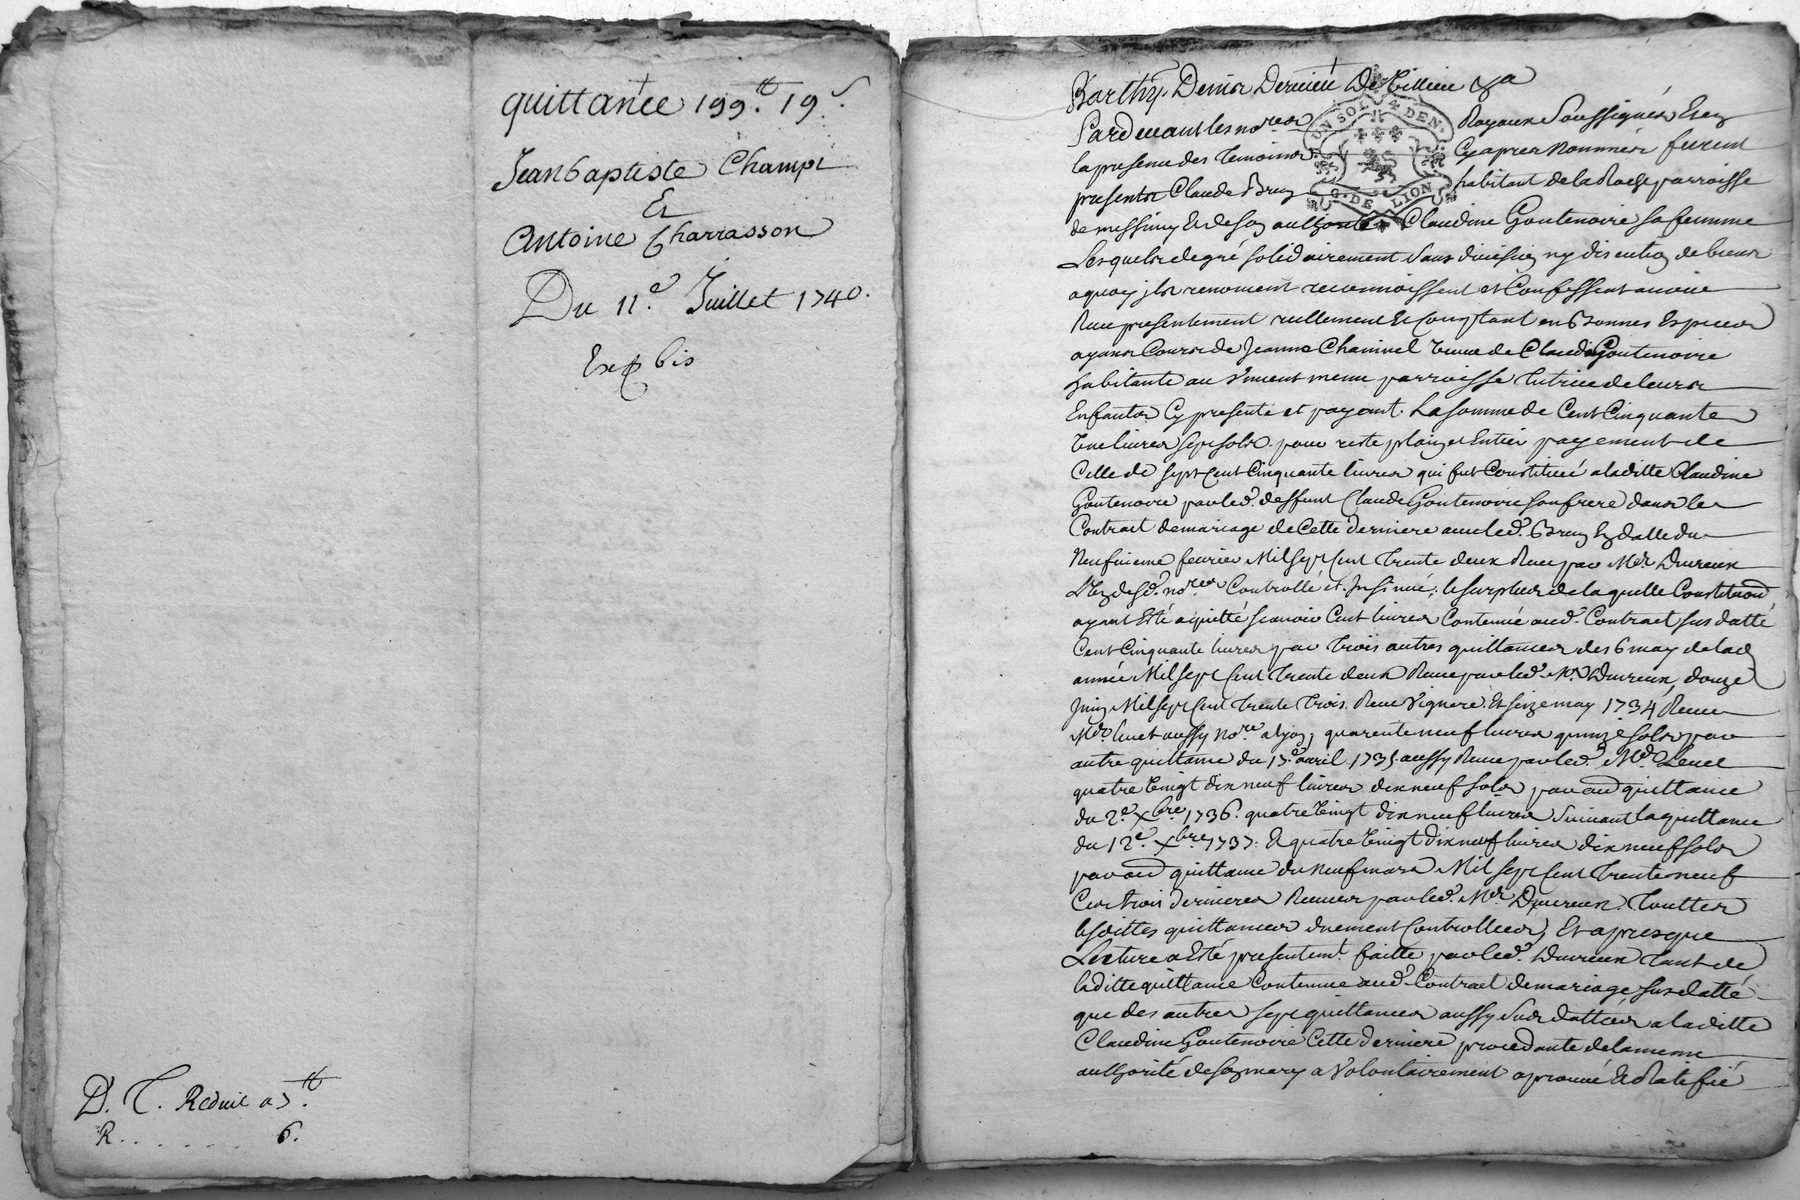 quittance 199.tt 19s.
Jeanbaptiste Champt
Et
Antoine Charrasson
Du 11.e Juillet 1740.
Exp bis
D. T. Reduit a 3.tt
R. . . . . . . 6.
UN SOL 4 DEN.
G. DE LION
Pardevant les no.res Royaux Soussignés Et en
la presence des temoins Cy apres nommés furent
presents Claude Brun habitant de la Roche parroisse
de messimy Et de son authorité Claudine Goutenoire sa femme
Lesquels de gré solidairement sans division ny discution de biens
a quoy ils renoncent reconnoissent et Confessent avoir
Receu presentement reellement Et Comptant en bonnes Especes
ayant Cours de Jeanne Chaninel veuve de Claude Goutenoire
habitante au meme parroisse tutrice de leurs
Enfants Cy presente et payant. La somme de Cent Cinquante
une livres sept sols. pour reste plain et Entier payement de
Celle de sept Cent Cinquante livres qui fut Constituée a laditte Claudine
Goutenoire par led. deffunt Claude Goutenoire son frere dans le
Contract de mariage de Cette derniere avec led. Brun En datte du
Neufvieme fevrier Mil sept Cent trente deux Receu par Me Duvreux
L'un desd. no.res Controllé et Insinué; le surplus de laquelle Constitution
ayant Eté aquitté scavoir Cent livres Contenüe aud. Contract sus datté
Cent Cinquante livres par trois autres quittances des 6 may de lad.
année Mil sept Cent trente deux Receue par led. Me Duvreux, douze
Juin Mil sept Cent trente trois. Receu Vignere, Et seize may 1734 Receue
Me aussy no.re a lyon; quarente neuf livres quinze sols par
autre quittance du 13.e avril 1735. aussy Receue par led. Me
quatre vingt dix neuf livres dix neuf sols par aud quittance
du 2.e Xbre 1736. quatre vingt dix neuf livres Suivant la quittance
du 12.e Xbre 1737. Et quatre vingt dix neuf livres dix neuf sols
par aud quittance du neuf mars Mil sept Cent trente neuf
Ces trois dernieres Receues par led. Me Duvreux. toutes
lesdittes quittances duement Controllées, Et apres que
Lecture a Eté presentemt. faitte par led. Duvreux tant de
laditte quittance Contenue aud. Contract de mariage sus datté
que des autres sept quittances aussy sus dattées a laditte
Claudine Goutenoire Cette derniere procedante de la meme
authorité de son mary a Volontairement aprouvé Et Ratifié